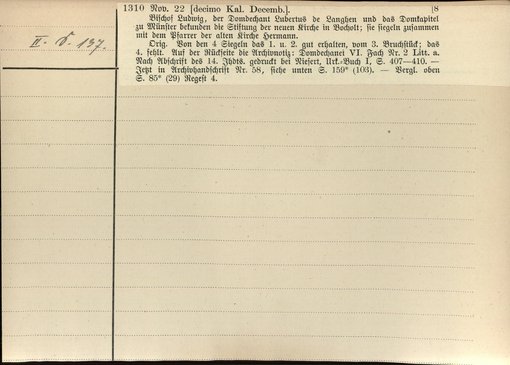 1310 Nov. 22 [decimo Kal. Decemb.]. [8
II. D. 137.
Bischof Ludwig, der Domdechant Lubertus de Langhen und das Domkapitel
zu Münster bekunden die Stiftung der neuen Kirche in Bocholt; sie siegeln zusammen
mit dem Pfarrer der alten Kirche Hermann.
Orig. Von den 4 Siegeln das 1. u. 2. gut erhalten, vom 3. Bruchstück; das
4. fehlt. Auf der Rückseite die Archivnotiz: Domdechanei VI. Fach Nr. 2 Litt. a.
Nach Abschrift des 14. Jhdts. gedruckt bei Niesert, Urk.-Buch I, S. 407—410. —
Jetzt in Archivhandschrift Nr. 58, siehe unten S. 159* (103). — Vergl. oben
S. 85* (29) Regest 4.